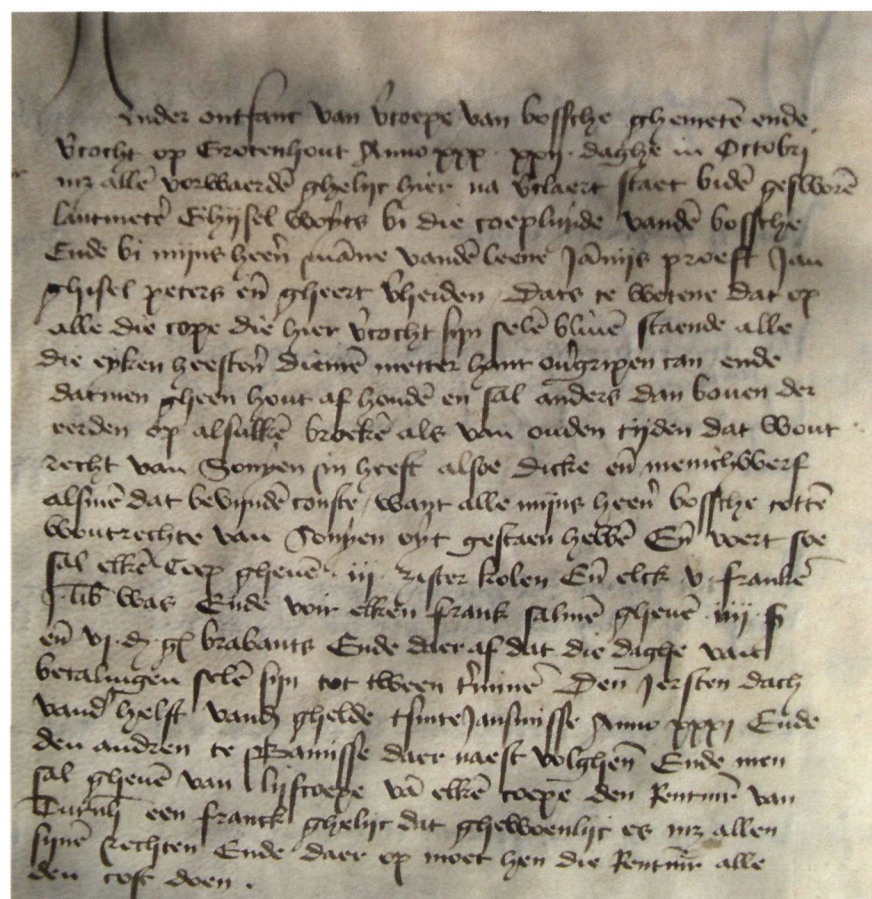 Ander ontfanc van v'coepe van bossche ghemetē ende
v'cocht op Grotenhout Anno xxx . xxij . daghe in Octobri
mz allē vorwaerdē ghelijc hier na v'claert staet bidē gesworē
lantmetē Ghijsel bi die coepluyde vandē bossche
Ende bi mijns heerē māne vandē leene Jānijs proeft Jan
ghisel peters eñ gheert v'heiden Dats te wetene dat op
alle die cope die hier v'cocht sijn selē bliuē staende alle
die eyken heestere diemē metter hant ou'gripen can ende
datmen gheen hout af houdē en sal anders dan bouen der
eerden op alsulkē broekē als van ouden tijden dat wout
recht van Sonyen in heeft alsoe dicke eñ menichwerf
alsmē dat bevyndē conste / want alle mijns heerē bossche tottē
woutrechte van Sonyen oyt gestaen hebbē Eñ voert soe
sal elkē Coep gheuē . iij . zister kolen Eñ elck v . frankē
j lib was Ende voir elken frank salmē gheuē . iiij . s
eñ vj . d . gl brabants Ende daer af dat die daghe van
betalingen selē sijn tot tween t'minē Den jersten dach
vand' helft vandē ghelde tsinte Jansmisse Anno xxxj Ende
den andren te Bamisse daer naest volghen Ende men
sal gheuē van lijfcoepe vā elkē coepe den Rentmr van
Turnh een franck ghelijc dat ghewoenlijc es mz allen
sijnē rechten Ende daer op moet hen die Rentmr alle
den cost doen .